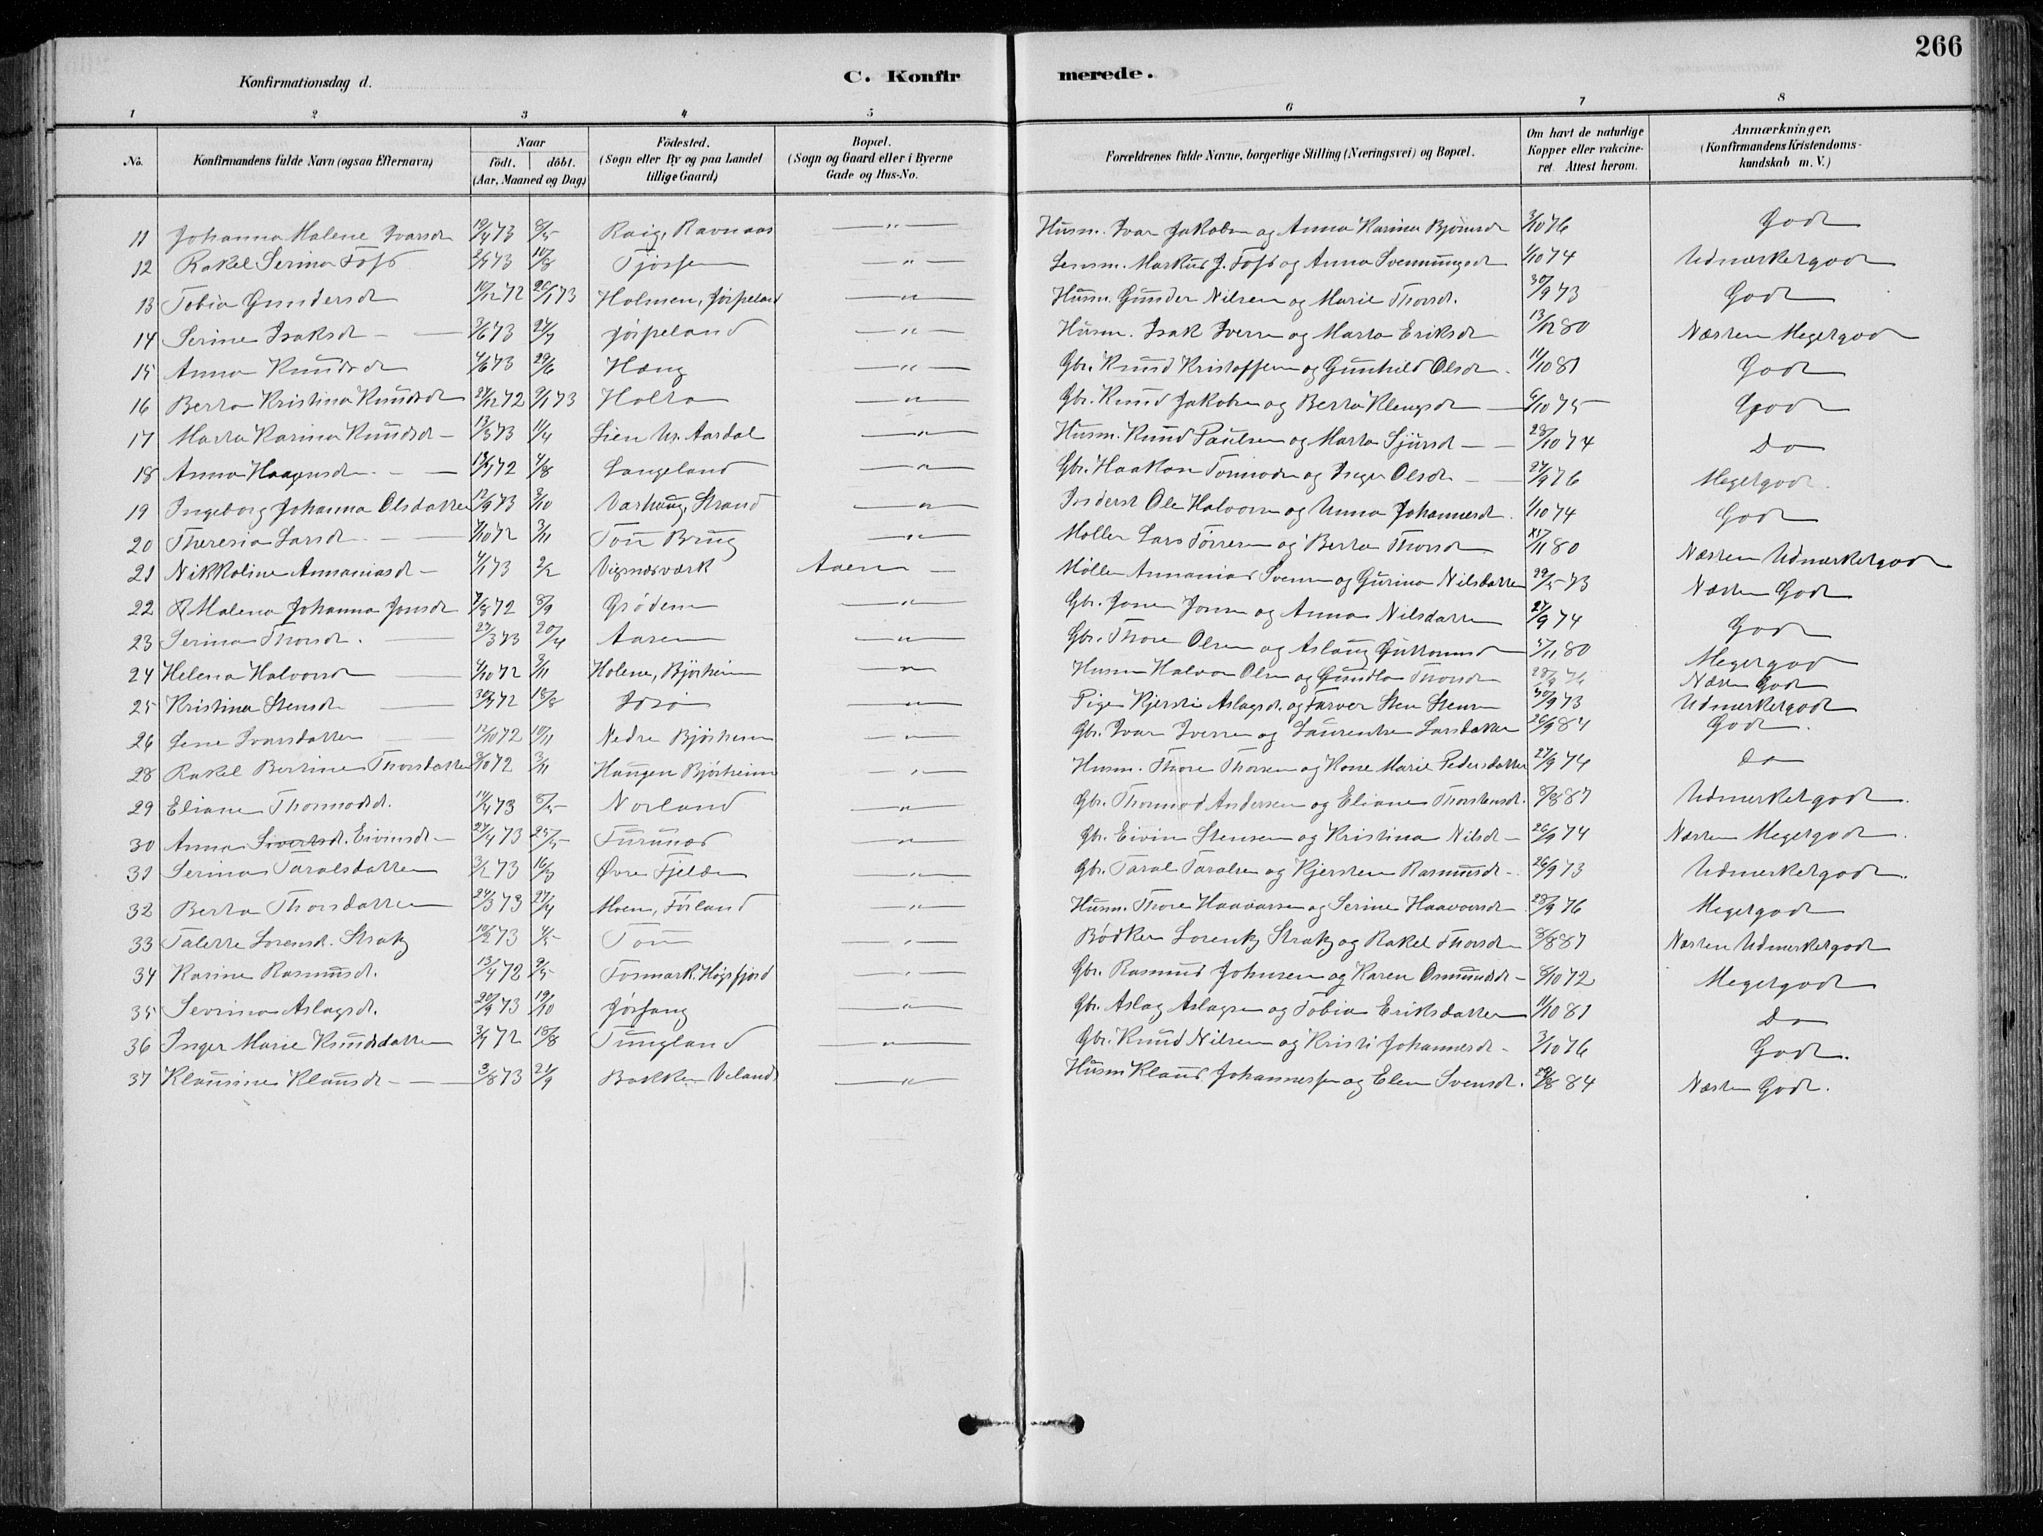 266
Konfirmationsdag d.
C. Konfirmerede.
1 2 3 4 5 6 7 8
No. Konfirmandens fulde Navn (ogsaa Efternavn) Naar födt. döbt. (Aar, Maaned og Dag) Födested. (Sogn eller By og paa Landet tillige Gaard) Bopæl. (Sogn og Gaard eller i Byerne Gade og Hus-No. Forældrenes fulde Navne, borgerlige Stilling (Næringsvei) og Bopæl. Om havt de naturlige Kopper eller vakcineret. Attest herom. Anmærkninger. (Konfirmandens Kristendomskundskab m. V.)
11 Johanna Malene Ivarsd 19/4 73 8/5 Raig, Ravnaas " Husm. Ivar Jakobsen og Anna Karina Bjørnsd 3/10 76 Godt
12 Rakel Serina Foss 2/7 73 10/8 Tjøssem " Lensm. Markus J. Foss og Anna Svenningsd 1/10 74 Udmerketgodt
13 Tobia Gundersd 10/12 72 26/1 73 Holmen, Jørpeland " Husm. Gunder Nilsen og Marie Thorsd. 30/9 73 Godt
14 Serine Isaksd 3/6 73 27/7 Jørpeland " Husm. Isak Iversen og Marta Eriksd 13/12 80 Næsten Megetgodt
15 Anna Knudsd 4/6 73 29/6 Hæng " Gbr. Knud Kristoffersen og Gunhild Olsd 11/10 81 Godt
16 Berta Kristina Knudsd 27/12 72 9/1 73 Holta " Gbr. Knud Jakobsen og Berta Klengsd 6/10 75 Godt
17 Marta Karina Knudsd 13/3 73 11/4 Lien Ør. Aardal " Husm. Knud Paulsen og Marta Sjursd 28/10 74 Do
18 Anna Haagensd 14/7 72 4/8 Langeland " Gbr. Haakon Tormodsen og Inger Olsd 27/9 76 Megetgodt.
19 Ingeborg Johanna Olsdatter 12/9 73 3/10 Varhaug Strand " Inderst Ole Halvorsen og Anna Johannesd. 1/10 74 Godt
20 Theresia Larsd. 7/10 72 3/11 Tou Brug " Møller Lars Tørresen og Berta Thorsd 17/11 80 Næsten Udmerketgodt
21 Nikkoline Annaniasd 4/1 73 2/2 Vigsnesværk Aaen Møller Annanias Svensen og Gurina Nilsdatter 29/5 73 Næsten Godt
22 Malena Johanna Jonsd 7/8 72 8/9 Grødem " Gbr. Jone Jonsen og Anna Nilsdatter 27/9 74 Godt
23 Serina Thorsd. 27/3 73 20/4 Aaren " Gbr. Thore Olsen og Aslaug Guttormsd 17/11 80 Megetgodt
24 Helena Halvorsd 4/10 72 3/11 Holene, Bjørheim " Husm Halvor Olsen og Gundla Thorsd 28/9 76 Næsten Godt
25 Kristina Stensd 30/7 72 18/8 Idsø " Pige Kjersti Aslagsd. og Farver Sten Stensen 30/9 73 Udmerketgodt
26 Lene Ivarsdatter 12/10 72 10/11 Nedre Bjørheim " Gbr. Ivar Iversen og Laurentse Larsdatter 26/9 84 Godt.
28 Rakel Bertine Thorsdatter 3/10 72 3/11 Haugen Bjørheim " Husm. Thore Thorsen og Kone Marie Pedersdatter 27/9 74 Do
29 Eliane Thormodsd. 14/4 73 8/5 Norland " Gbr. Thormod Andersen og Eliane Thorstensd. 8/8 87 Udmerketgodt.
30 Anna Sivertsd. Eivinsd 27/4 73 25/5 Turunes " Gbr. Eivin Stensen og Kristina Nilsd 26/9 74 Næsten Megetgodt.
31 Serina Taralsdatter 3/2 73 16/3 Øvre Fjelde " Gbr. Taral Taralsen og Kjersten Rasmusd 26/9 73 Udmerketgodt.
32 Berta Thorsdatter 24/3 73 27/4 Moen, Førland " Husm. Thore Haavarsen og Serine Haavorsd 28/9 76 Megetgodt
33 Talette Lorensd. Stratz 19/2 73 4/5 Tou " Bødker Lorentz Stratz og Rakel Thorsd 8/8 87 Næsten Udmerketgodt
34 Karine Rasmusd. 13/4 72 9/5 Fosmark, Høgsfjord " Gbr. Rasmus Johnsen og Karen Osmundsd 8/10 72 Megetgodt
35 Severina Aslagsd. 20/9 73 19/10 Jøssang " Gbr. Aslag Aslagsen og Tobia Eriksdatter 11/10 81 Do
36 Inger Marie Knudsdatter 3/7 72 18/8 Tungland " Gbr. Knud Nilsen og Kristi Johannesd 3/10 76 Godt.
37 Klausine Klausd 3/8 73 21/9 Bakken Veland " Husm Klaus Johannessen og Elen Svensd. 29/8 84 Næsten Godt.